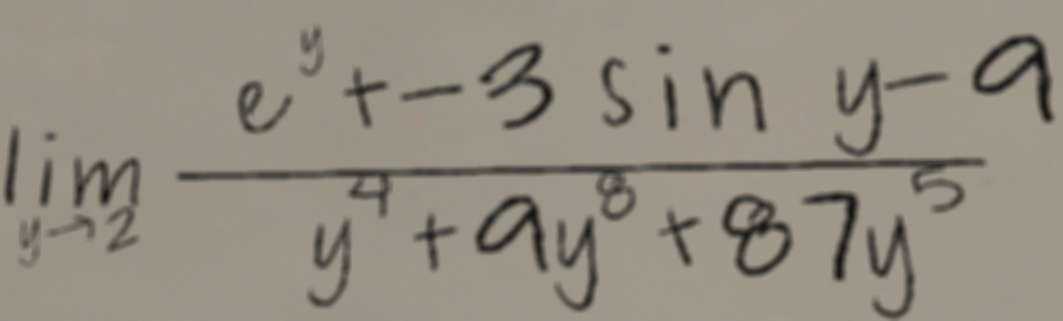 \lim_{y \to 2} \frac{e^y + -3 \sin y - 9}{y^4 + 9y^8 + 87y^5}